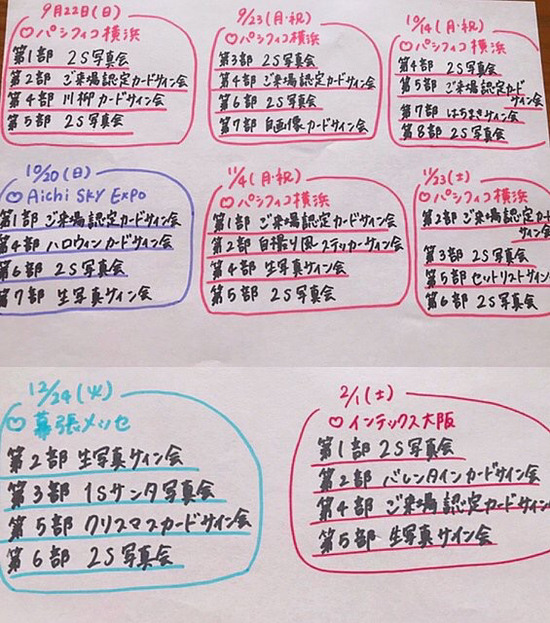 9月22日(日)
♡パシフィコ横浜
第1部 2S写真会
第2部 ご来場認定カードサイン会
第4部 川柳カードサイン会
第5部 2S写真会
9/23(月・祝)
♡パシフィコ横浜
第3部 2S写真会
第4部 ご来場認定カードサイン会
第6部 2S写真会
第7部 自画像カードサイン会
10/14(月・祝)
♡パシフィコ横浜
第4部 2S写真会
第5部 ご来場認定カード
サイン会
第7部 はちまきサイン会
第8部 2S写真会
10/20(日)
♡Aichi SKY EXPO
第1部 ご来場認定カードサイン会
第4部 ハロウィンカードサイン会
第6部 2S写真会
第7部 生写真サイン会
11/4(月・祝)
♡パシフィコ横浜
第1部 ご来場認定カードサイン会
第2部 自撮り風ステッカーサイン会
第4部 生写真サイン会
第5部 2S写真会
11/23(土)
♡パシフィコ横浜
第2部 ご来場認定カード
サイン会
第3部 2S写真会
第5部 セットリストサイン
第6部 2S写真会
12/24(火)
♡幕張メッセ
第2部 生写真サイン会
第3部 1Sサンタ写真会
第5部 クリスマスカードサイン会
第6部 2S写真会
2/1(土)
♡インテックス大阪
第1部 2S写真会
第2部 バレンタインカードサイン会
第4部 ご来場認定カードサイン
第5部 生写真サイン会